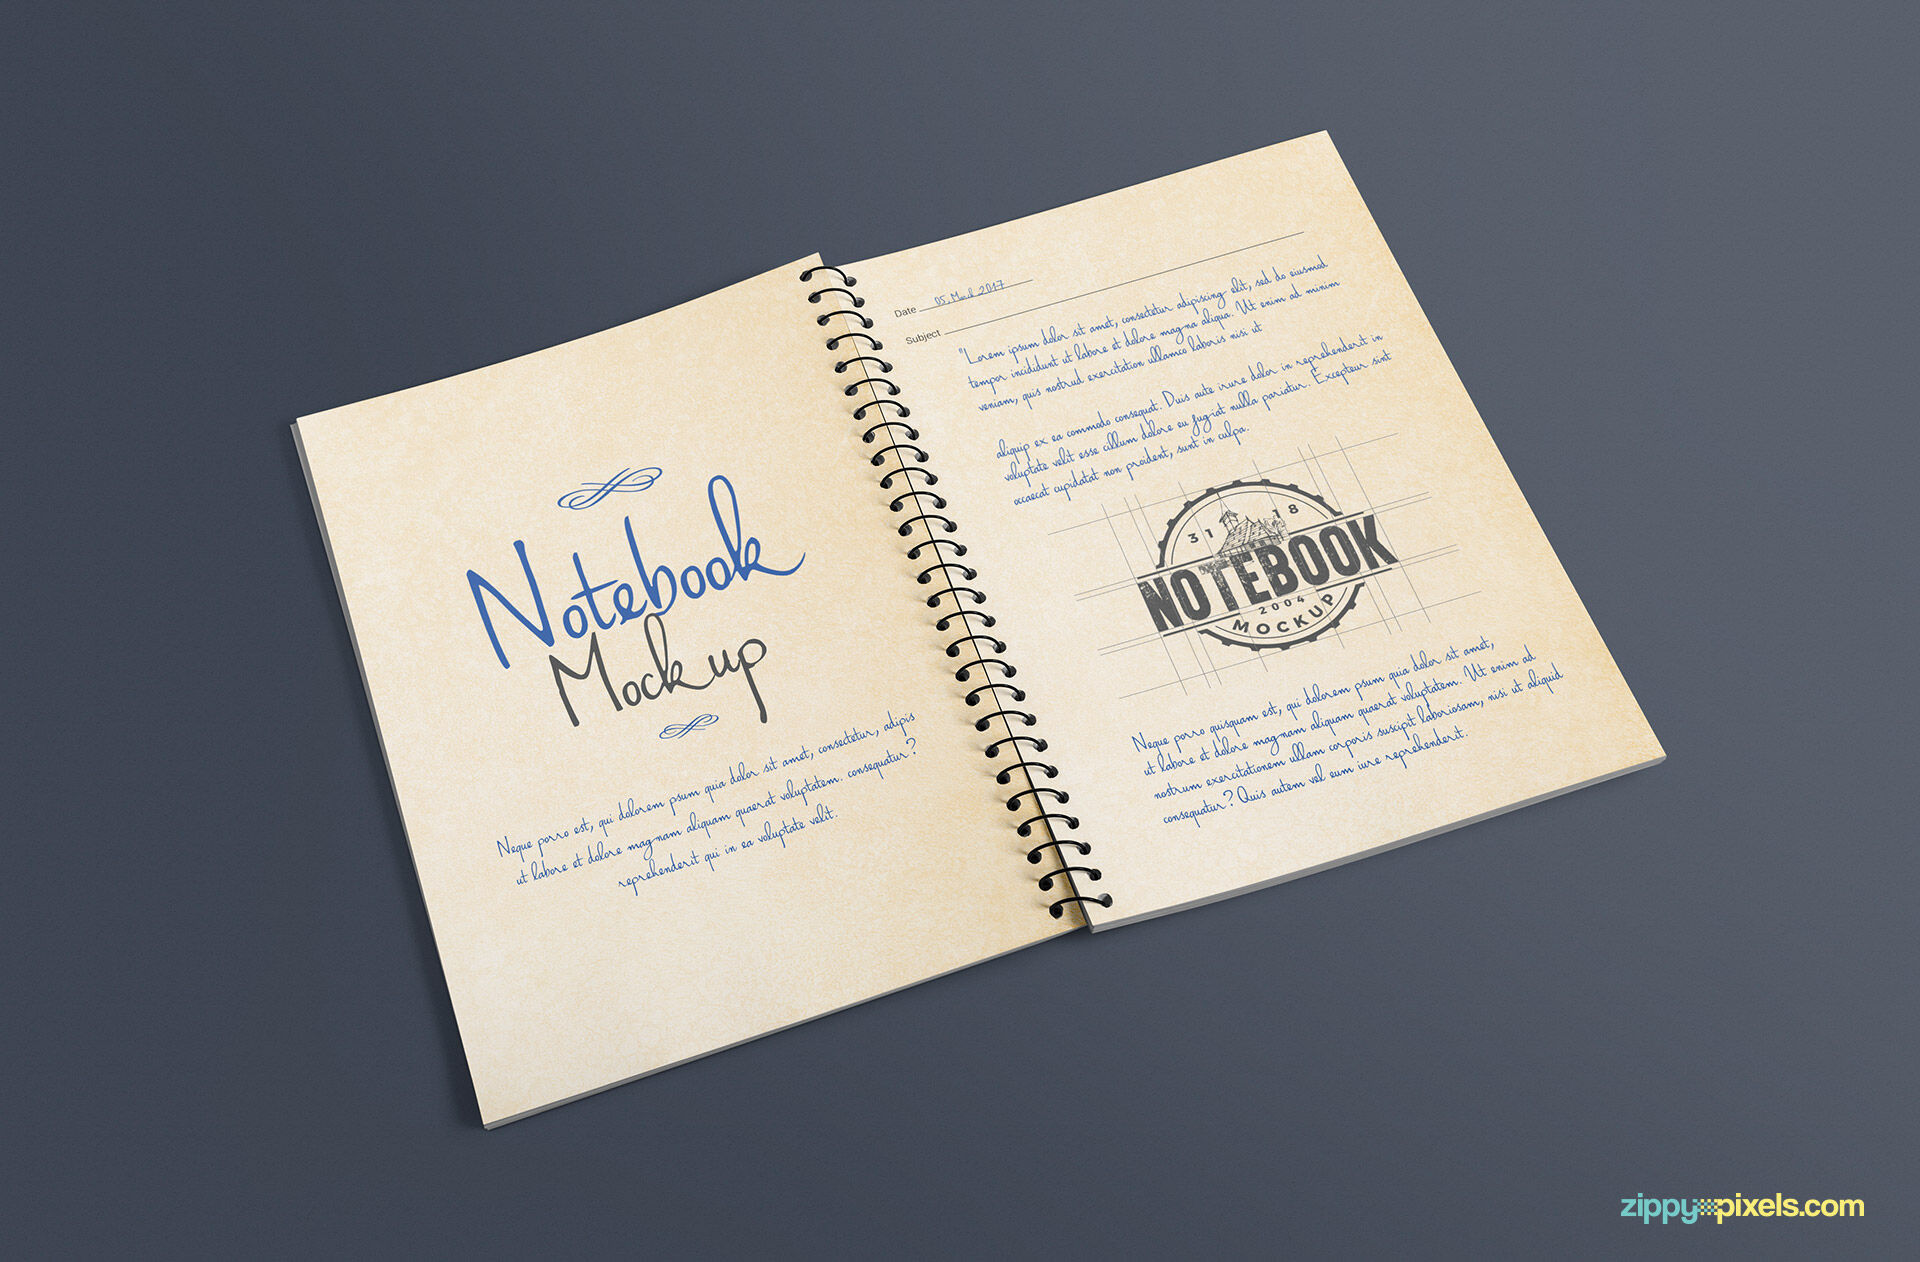 Notebook
Mockup
Neque porro est, qui dolorem psum quia dolor sit amet, consectetur, adipis
ut labore et dolore magnam aliquam quaerat voluptatem. consequatur?
reprehenderit qui in ea voluptate velit.
Date 05, 2017
Subject
"Lorem ipsum dolor sit amet, consectetur adipiscing elit, sed do eiusmod
tempor incididunt ut labore et dolore magna aliqua. Ut enim ad minim
veniam, quis nostrud exercitation ullamco laboris nisi ut
aliquip ex ea commodo consequat. Duis aute irure dolor in reprehenderit in
voluptate velit esse cillum dolore eu fugiat nulla pariatur. Excepteur sint
occaecat cupidatat non proident, sunt in culpa.
31 18
NOTEBOOK
2004
MOCKUP
Neque porro quisquam est, qui dolorem psum quia dolor sit amet,
ut labore et dolore magnam aliquam quaerat voluptatem. Ut enim ad
nostrum exercitationem ullam corporis suscipit laboriosam, nisi ut aliquid
consequatur? Quis autem vel eum iure reprehenderit.
zippypixels.com